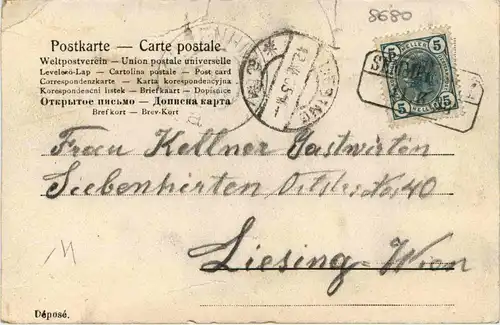 8680
Postkarte — Carte postale
Weltpostverein — Union postale universelle
Levelező-Lap — Cartolina postale — Post card
Correspondenzkarte — Karta korespondencyjna
Korespondenční listek — Briefkaart — Dopisnice
Открытое письмо — Дописна карта
Brefkort — Brev-Kort
LIESING
5 5
HELLER HELLER
5 5
Frau Kellner Gastwirtin
Siebenhirten No 40
Liesing Wien
Déposé.